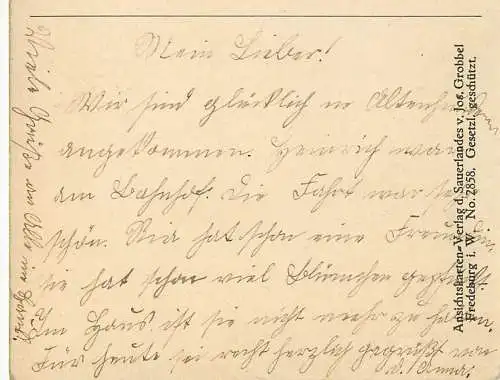 Mein Lieber!
Wir sind glücklich in Altenhundem
angekommen. Heinrich war
am Bahnhof. Die Fahrt war sehr
schön. Ria hat schon eine Freundin
sie hat schon viel Blümchen gepflückt.
Im Haus ist sie nicht mehr zu halten.
Für heute sei recht herzlich gegrüßt von
d. Anna.
Viele Grüße an Alle im Haus
Ansichtskarten-Verlag d. Sauerlandes v. Jos. Grobbel
Fredeburg i. W. No. 2858. Gesetzl. geschützt.